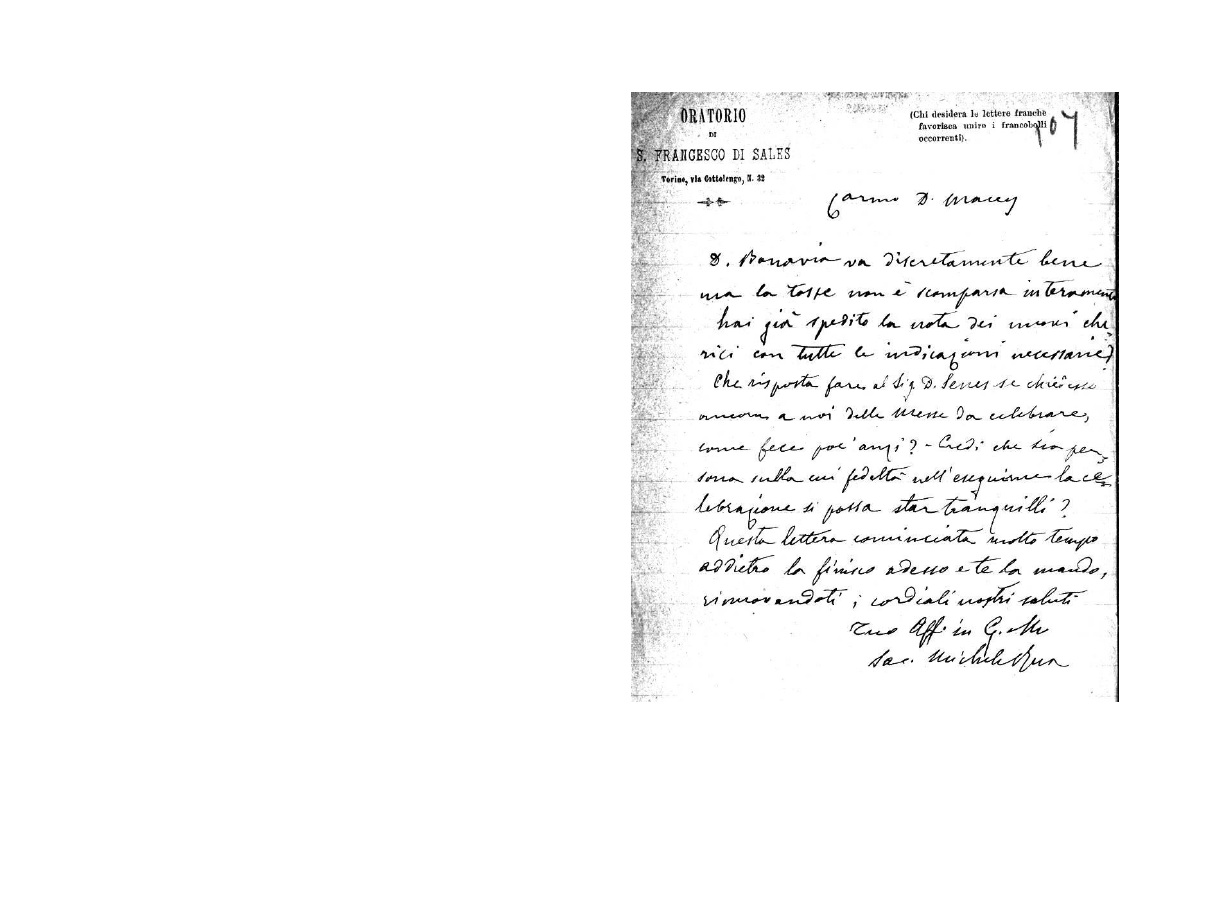 ORATORIO
DI
S. FRANCESCO DI SALES
Torino, via Cottolengo, N. 32
(Chi desidera le lettere franche
favorisca unire i francobolli
occorrenti).
107
Carmo D. Macey
D. Bonavia va discretamente bene
ma la tosse non è scomparsa interamente
hai già spedito la nota dei nuovi che-
rici con tutte le indicazioni necessarie?
Che risposta fare al Sig. D. se chiedesse
ancora a noi delle Messe da celebrare,
come fece poc'anzi? - Credi che sia per-
sona sulla cui fedeltà nell'eseguirne la ce-
lebrazione si possa star tranquilli?
Questa lettera cominciata molto tempo
addietro la finisco adesso e te la mando,
rinnovandoti i cordiali nostri saluti
Tuo Aff. in G. e M.
Sac. Michele Rua